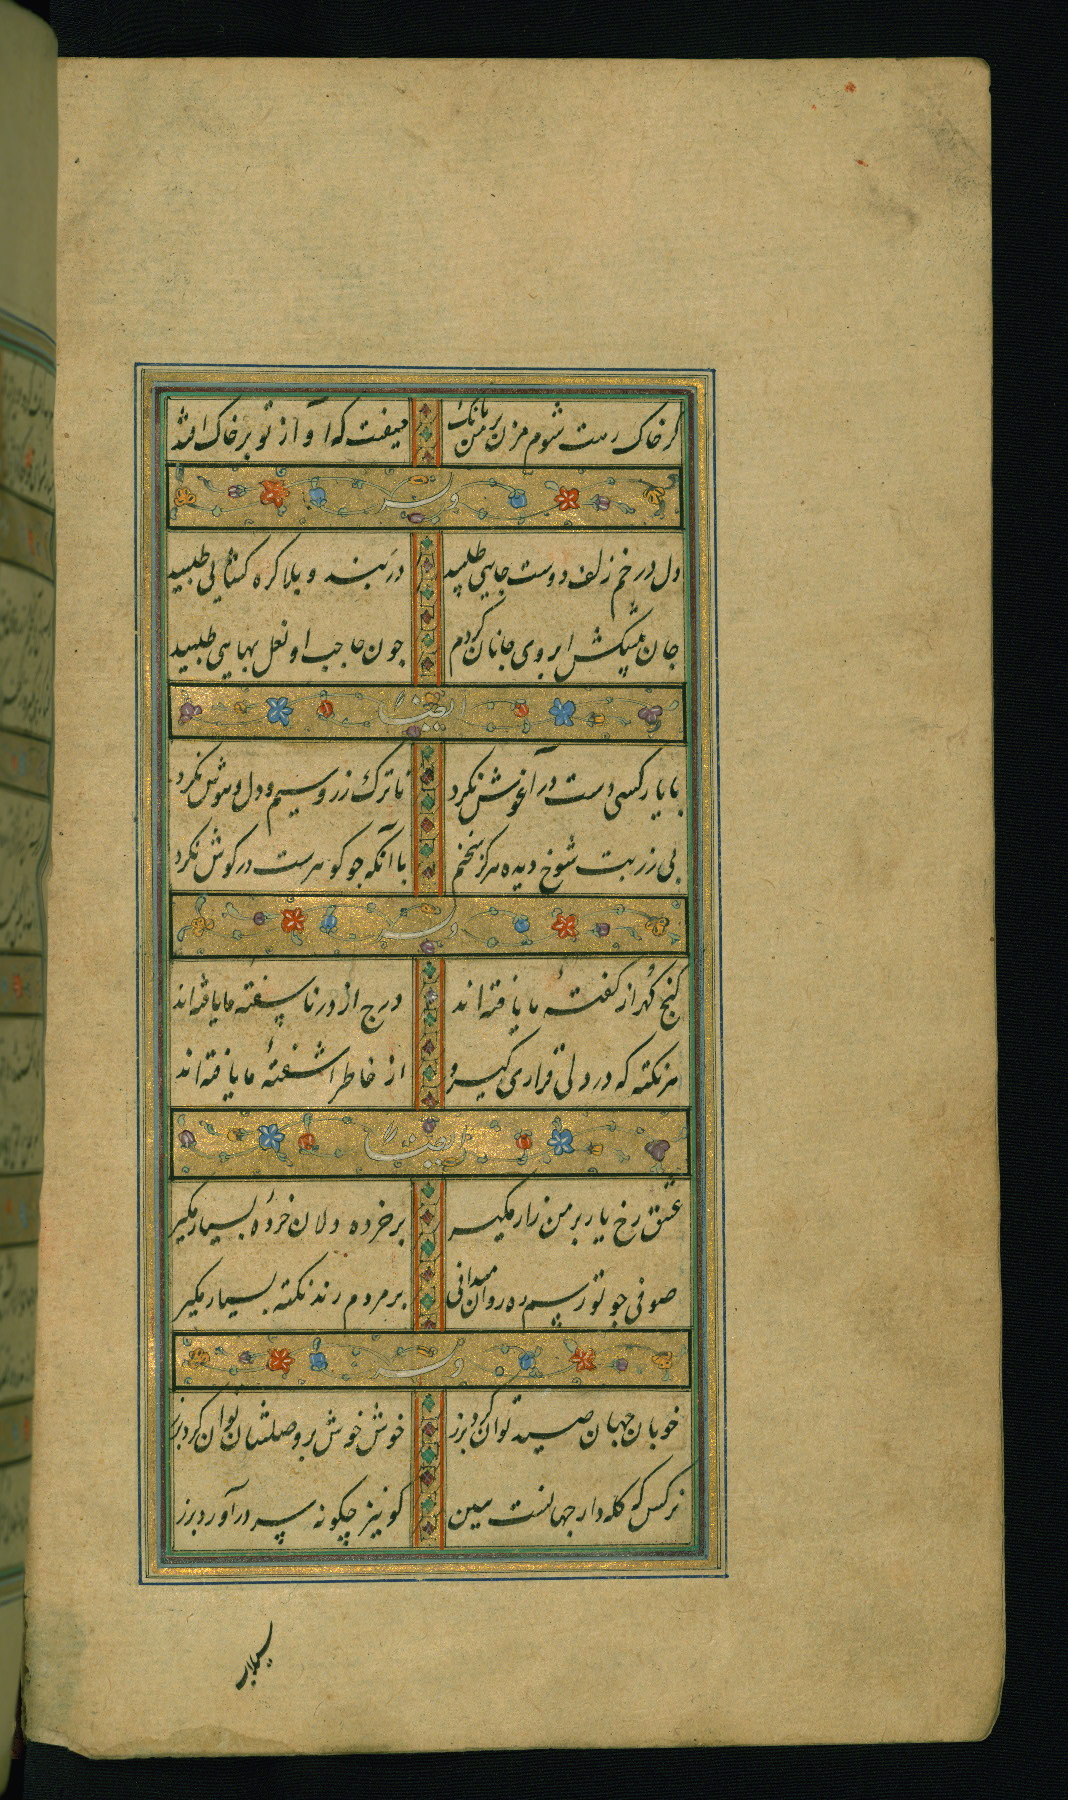 گر خاک رهت شوم مزن بر من بانگ میفت که آواز تو بر خاک افتد
وله
دل در خم زلف دوست جایی طلبید در بند و بلا گره گشایی طلبید
جان پیشکش ابروی جانان کردم چون حاجب او نعل بهایی طلبید
ایضا
با یار کسی دست در آغوش نکرد تا ترک زر و سیم و دل و هوش نکرد
بی زر بت شوخ دیده هرگز سخنم با آنکه چو گوهرست در گوش نکرد
وله
گنج گهر از گفته ما یافته اند درج از در ناسفته ما یافته اند
هر نکته که در دلی قراری گیرد از خاطر آشفته ما یافته اند
ایضا
عشق رخ یار بر من زار مگیر بر خرده دلان خرده بسیار مگیر
صوفی چو تو رسم ره روان میدانی بر مردم رند نکته بسیار مگیر
وله
خوبان جهان صید توان کرد بزر خوش خوش بر وصلشان توان کرد بزر
نرکس که کله دار جهانست ببین کو نیز چگونه سر درآورد بزر
سیلاب